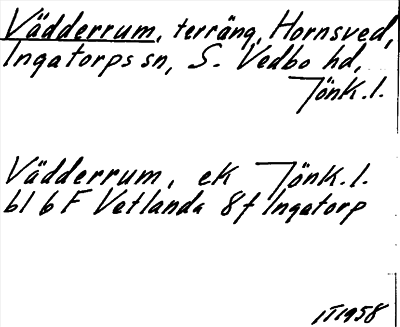 Vädderrum, terräng, Hornsved,
Ingatorps sn, S. Vedbo hd,
Jönk.l.
Vädderrum, ek Jönk.l.
bl 6 F Vetlanda 8f Ingatorp
IT1958